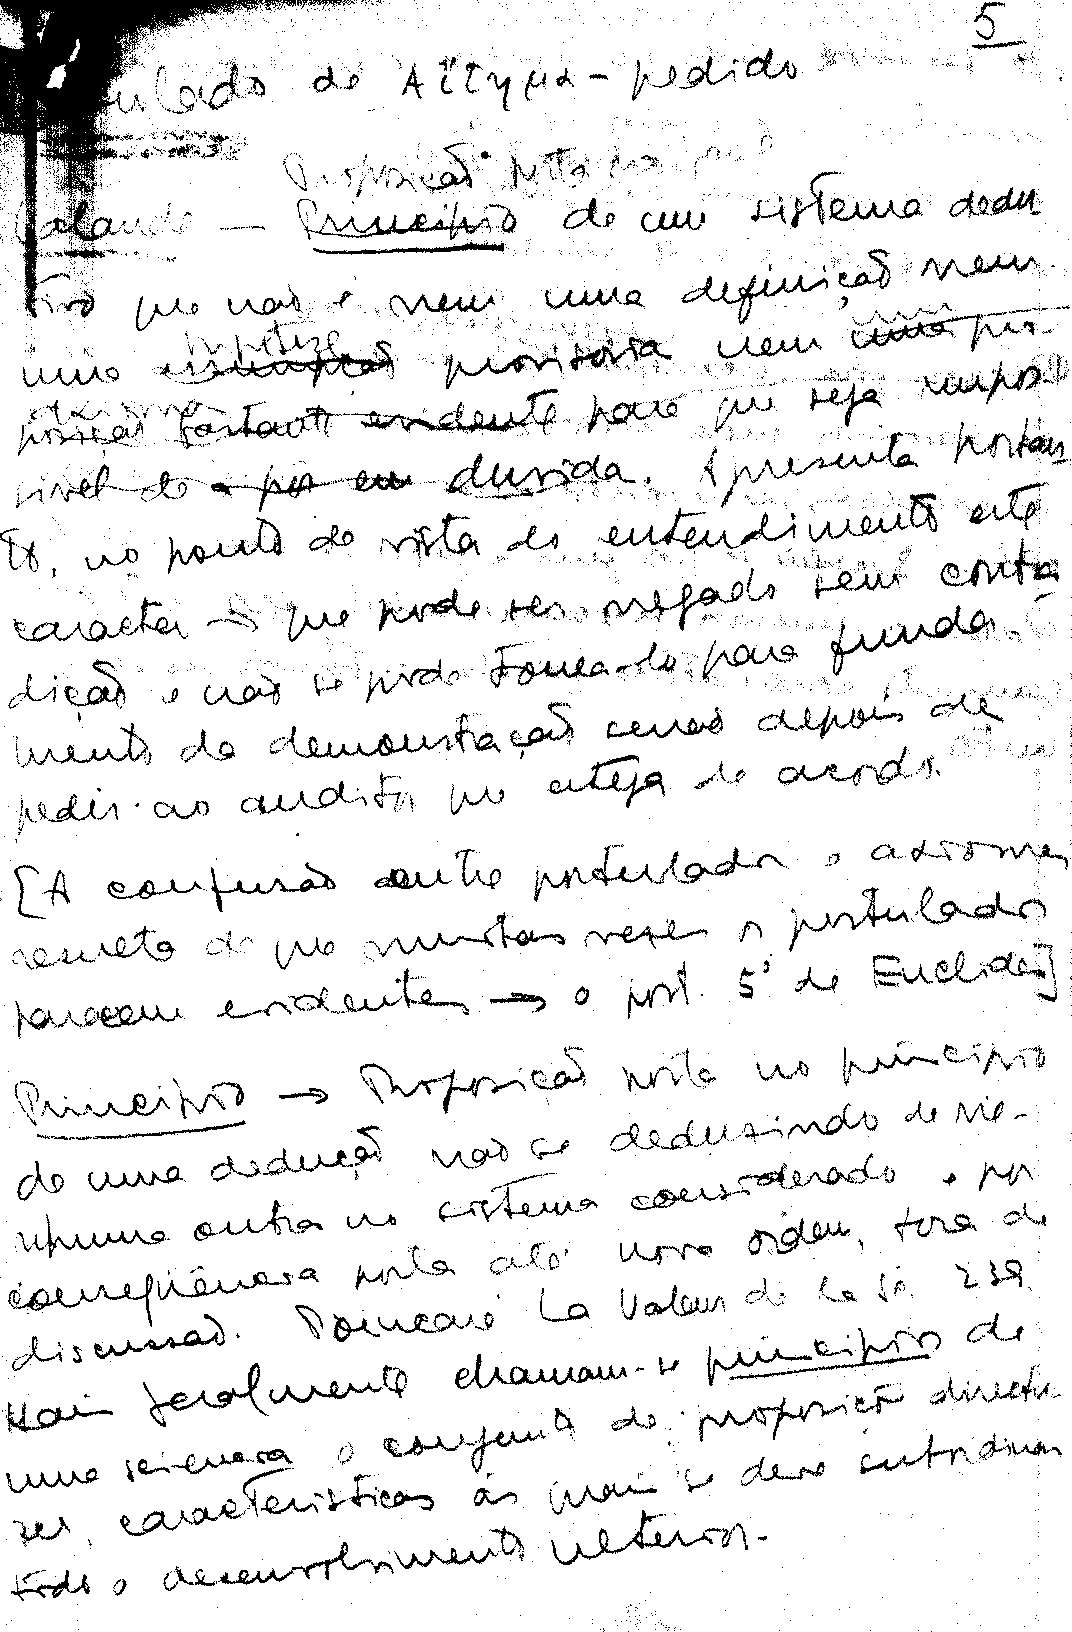 5
ulado de Αἴτημα - pedido
Proposição posta
Lalande — Principio de um sistema dedu
tivo que não é nem uma definição nem
uma assumpção hipoteze provisoria nem uma pro-
posição bastante evidente para que seja impos
sivel de a por em duvida. Apresenta portan
to, no ponto de vista do entendimento este
caracter → que pode ser negado sem contra
dição e não se pode toma-lo para funda
mento da demonstração senão depois de
pedir ao auditor que esteja de acordo.
[A confusão entre postulados e axiomas
resulta de que muitas vezes os postulados
parecem evidentes → o post. 5º de Euclides]
Principio → Proposição posta no principio
de uma dedução não se deduzindo de ne-
nhuma outra no sistema considerado e por
consequencia posta até nova ordem, fora de
discussão. Poincaré La Valeur de la Sc 239
Mais geralmente chamam-se principios de
uma sciencia o conjunto de proposições directri
zes, caracteristicas ás quais se deve subordinar
todo o desenvolvimento ulterior.